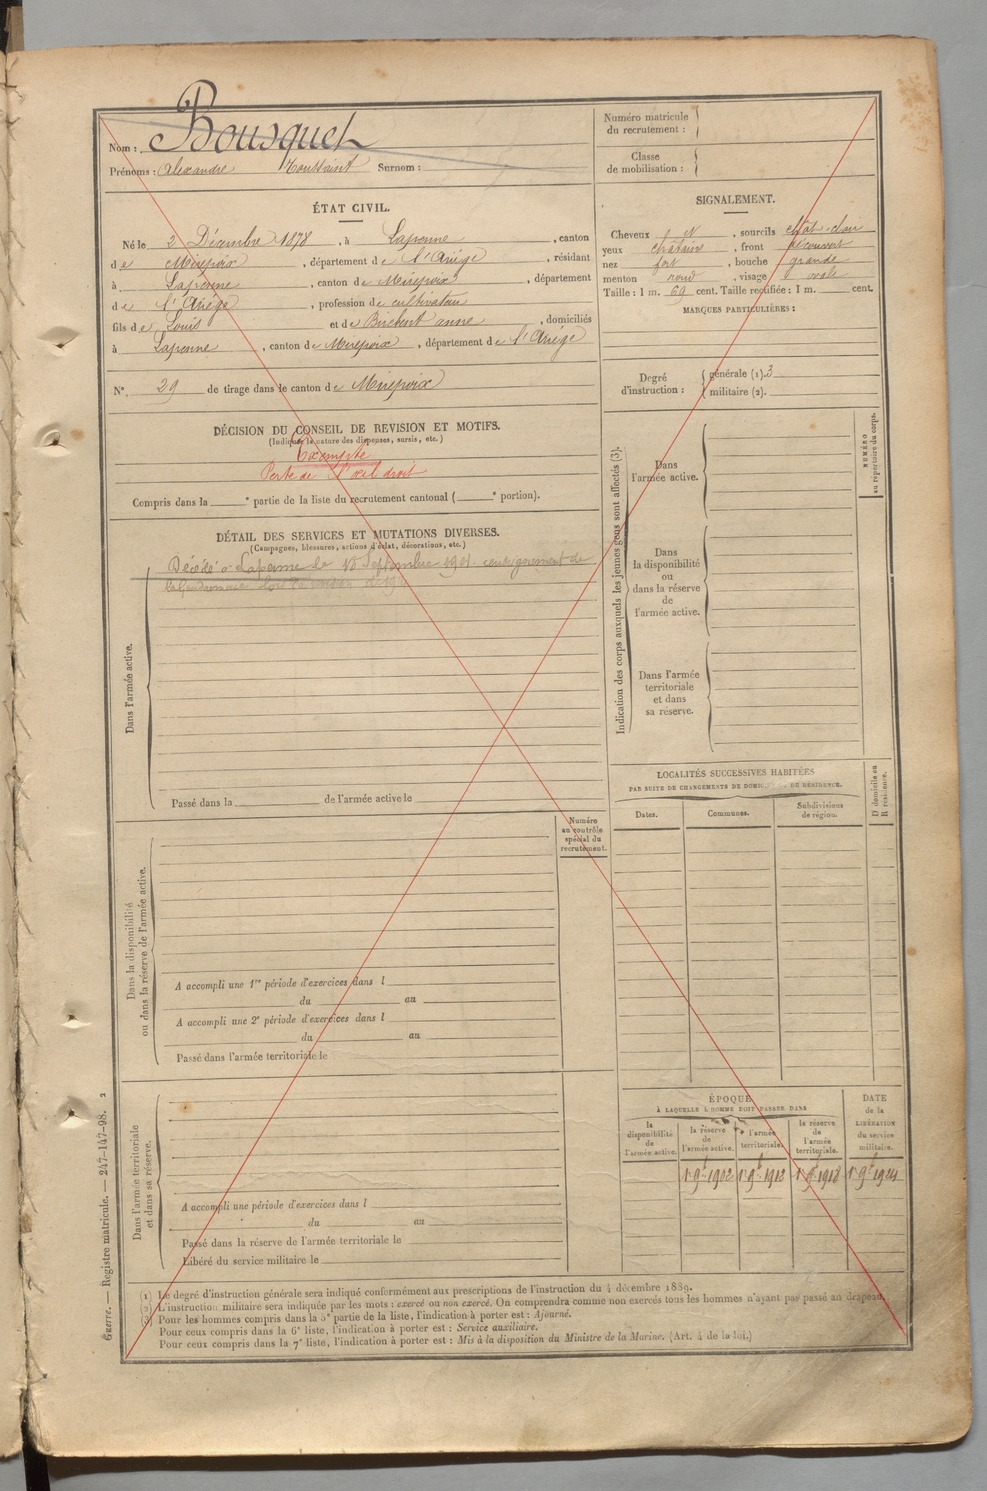 Nom : Bousquet
Prénoms : Alexandre Toussaint Surnom :
Numéro matricule
du recrutement :
Classe
de mobilisation :
ÉTAT CIVIL.
Né le 2 Décembre 1878, à Lapenne, canton
de Mirepoix, département de l'Ariège, résidant
à Lapenne, canton de Mirepoix, département
de l'Ariège, profession de cultivateur
fils de Louis et de anne, domiciliés
à Lapenne, canton de Mirepoix, département de l'Ariège
N° 29 de tirage dans le canton de Mirepoix
SIGNALEMENT.
Cheveux et, sourcils chât. clair
yeux châtains, front découvert
nez fort, bouche grande
menton rond, visage ovale
Taille : 1 m. 69 cent. Taille rectifiée : 1 m. cent.
MARQUES PARTICULIÈRES :
Degré
d'instruction :
générale (1). 3
militaire (2).
DÉCISION DU CONSEIL DE REVISION ET MOTIFS.
(Indiquer la nature des dispenses, sursis, etc.)
Exempté
Perte de l'œil droit
Compris dans la e partie de la liste du recrutement cantonal ( e portion).
DÉTAIL DES SERVICES ET MUTATIONS DIVERSES.
(Campagnes, blessures, actions d'éclat, décorations, etc.)
Décédé à Lapenne le 18 Septembre 1901. renseignement de
la gendarmerie
Dans l'armée active.
Passé dans la de l'armée active le
Indication des corps auxquels les jeunes gens sont affectés (3).
Dans
l'armée active.
Dans
la disponibilité
ou
dans la réserve
de
l'armée active.
Dans l'armée
territoriale
et dans
sa réserve.
NUMÉRO
au répertoire du corps.
LOCALITÉS SUCCESSIVES HABITÉES
PAR SUITE DE CHANGEMENTS DE DOMIC DE RÉSIDENCE.
Dates.
Communes.
Subdivisions
de région.
D domicile ou
R résidence.
Numéro
au contrôle
spécial du
recrutement.
Dans la disponibilité
ou dans la réserve de l'armée active.
A accompli une 1re période d'exercices dans l
du au
A accompli une 2e période d'exercices dans l
du au
Passé dans l'armée territoriale le
Dans l'armée territoriale
et dans sa réserve.
A accompli une période d'exercices dans l
du au
Passé dans la réserve de l'armée territoriale le
Libéré du service militaire le
ÉPOQUE
À LAQUELLE L'HOMME DOIT PASSER DANS
la
disponibilité
de
l'armée active.
la réserve
de
l'armée active.
l'armée
territoriale.
la réserve
de
l'armée
territoriale.
DATE
de la
LIBÉRATION
du service
militaire.
1er 9bre 1902
1er 9bre 1912
1er 9bre 1918
1er 9bre 1924
(1) Le degré d'instruction générale sera indiqué conformément aux prescriptions de l'instruction du 4 décembre 1889.
(2) L'instruction militaire sera indiquée par les mots : exercé ou non exercé. On comprendra comme non exercés tous les hommes n'ayant pas passé au drapeau.
(3) Pour les hommes compris dans la 5e partie de la liste, l'indication à porter est : Ajourné.
Pour ceux compris dans la 6e liste, l'indication à porter est : Service auxiliaire.
Pour ceux compris dans la 7e liste, l'indication à porter est : Mis à la disposition du Ministre de la Marine. (Art. 4 de la loi.)
Guerre. — Registre matricule. — 247-147-98. 2